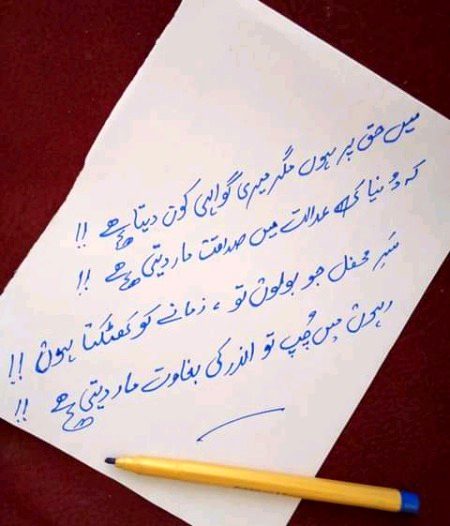 میں حق پر ہوں مگر میری گواہی کون دیتا ہے !!
کہ دُنیا کی عدالت میں صداقت مار دیتی ہے !!
سَرِ محفل جو بولوں تو ، زمانے کو کھٹکتا ہوں !!
رہوں میں چُپ تو اندر کی بغاوت مار دیتی ہے !!